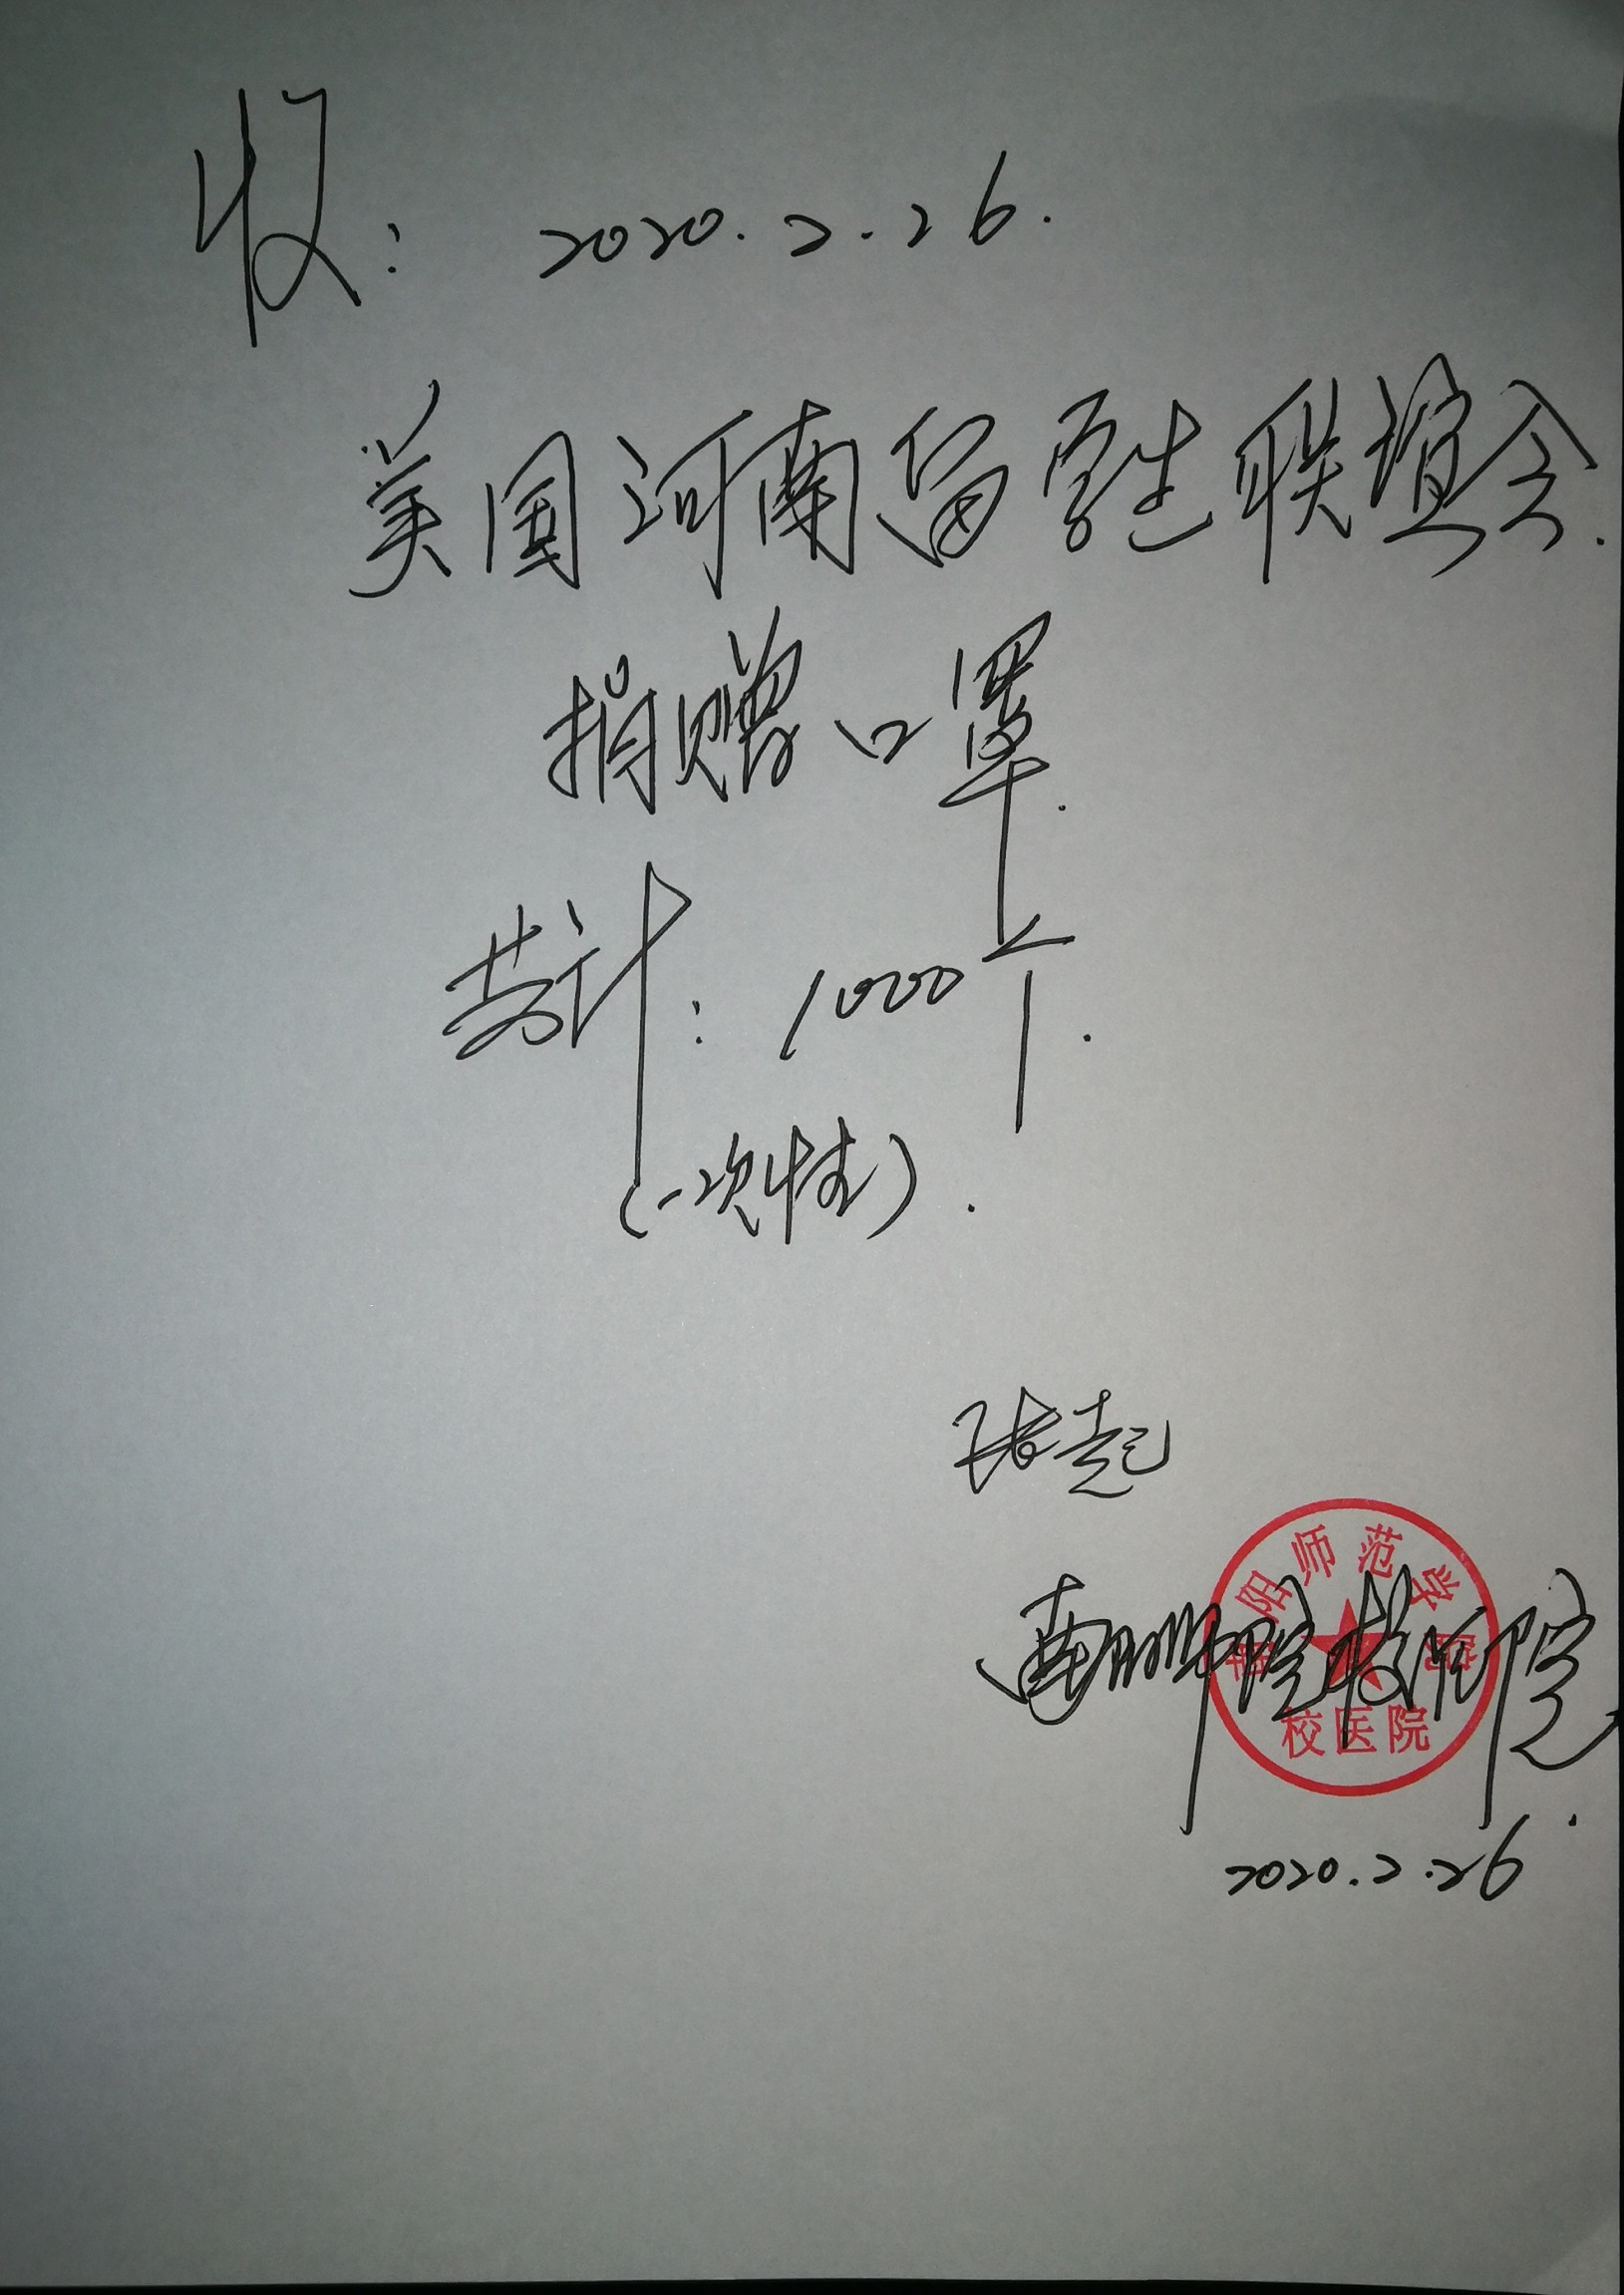 收: 2020.2.26.
美国河南留学生联谊会.
捐赠口罩.
共计: 1000个.
(一次性).
张起
南阳师院校医院.
南阳师范学院
校医院
2020.2.26